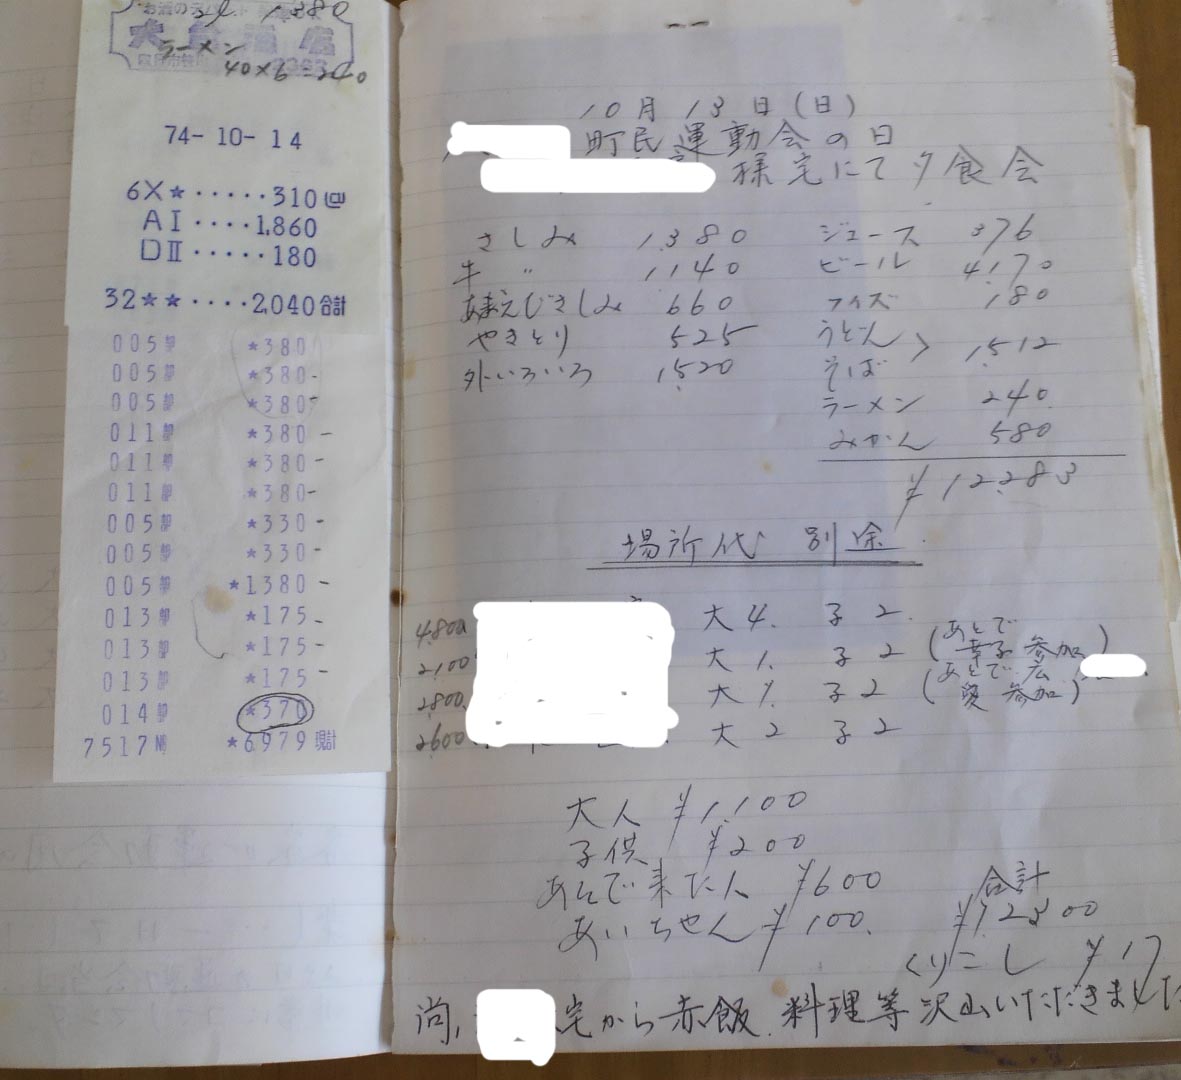 お酒のデパート
24 1380
ラーメン
40×6=240
74-10-14
6X★·····310@
AⅠ····1,860
DⅡ·····180
32★★····2,040合計
005部 ★380
005部 ★380-
005部 ★380-
011部 ★380-
011部 ★380-
011部 ★380-
005部 ★330-
005部 ★330-
005部 ★1380-
013部 ★175-
013部 ★175-
013部 ★175-
014部 ★370
7517№ ★6,979現計
10月13日(日)
町民運動会の日
様宅にて夕食会
さしみ 1,380
牛 〃 1,140
あまえびさしみ 660
やきとり 525
外いろいろ 1,520
ジュース 376
ビール 4,170
フイズ 180
うどん > 1,512
そば
ラーメン 240
みかん 580
¥12,283
場所代 別途
4,800 大4. 子2
2,100 大1. 子2 (あとで幸子参加)
2,800 大1. 子2 (あとで広 愛参加)
2,600 大2 子2
大人 ¥1,100
子供 ¥200
あとで来た人 ¥600
あいちゃん ¥100.
合計
¥12,300
くりこし ¥17
尚, 宅から赤飯.料理等沢山いただきました